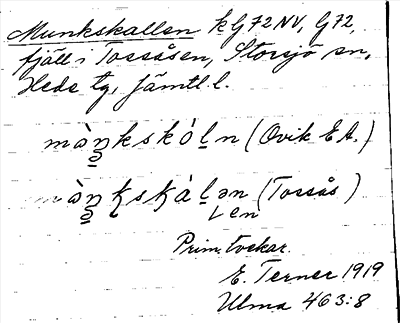 Munkskallen k G72 NV, G72,
fjäll i Tossåsen, Storsjö sn,
Heds tg, Jämtl. l.
màn̲kskòl̲n (Ovik E A.)
màn̲kskàl̲ən (Tossås)
en
Prim. tockar.
E. Terner 1919
Ulma 463:8